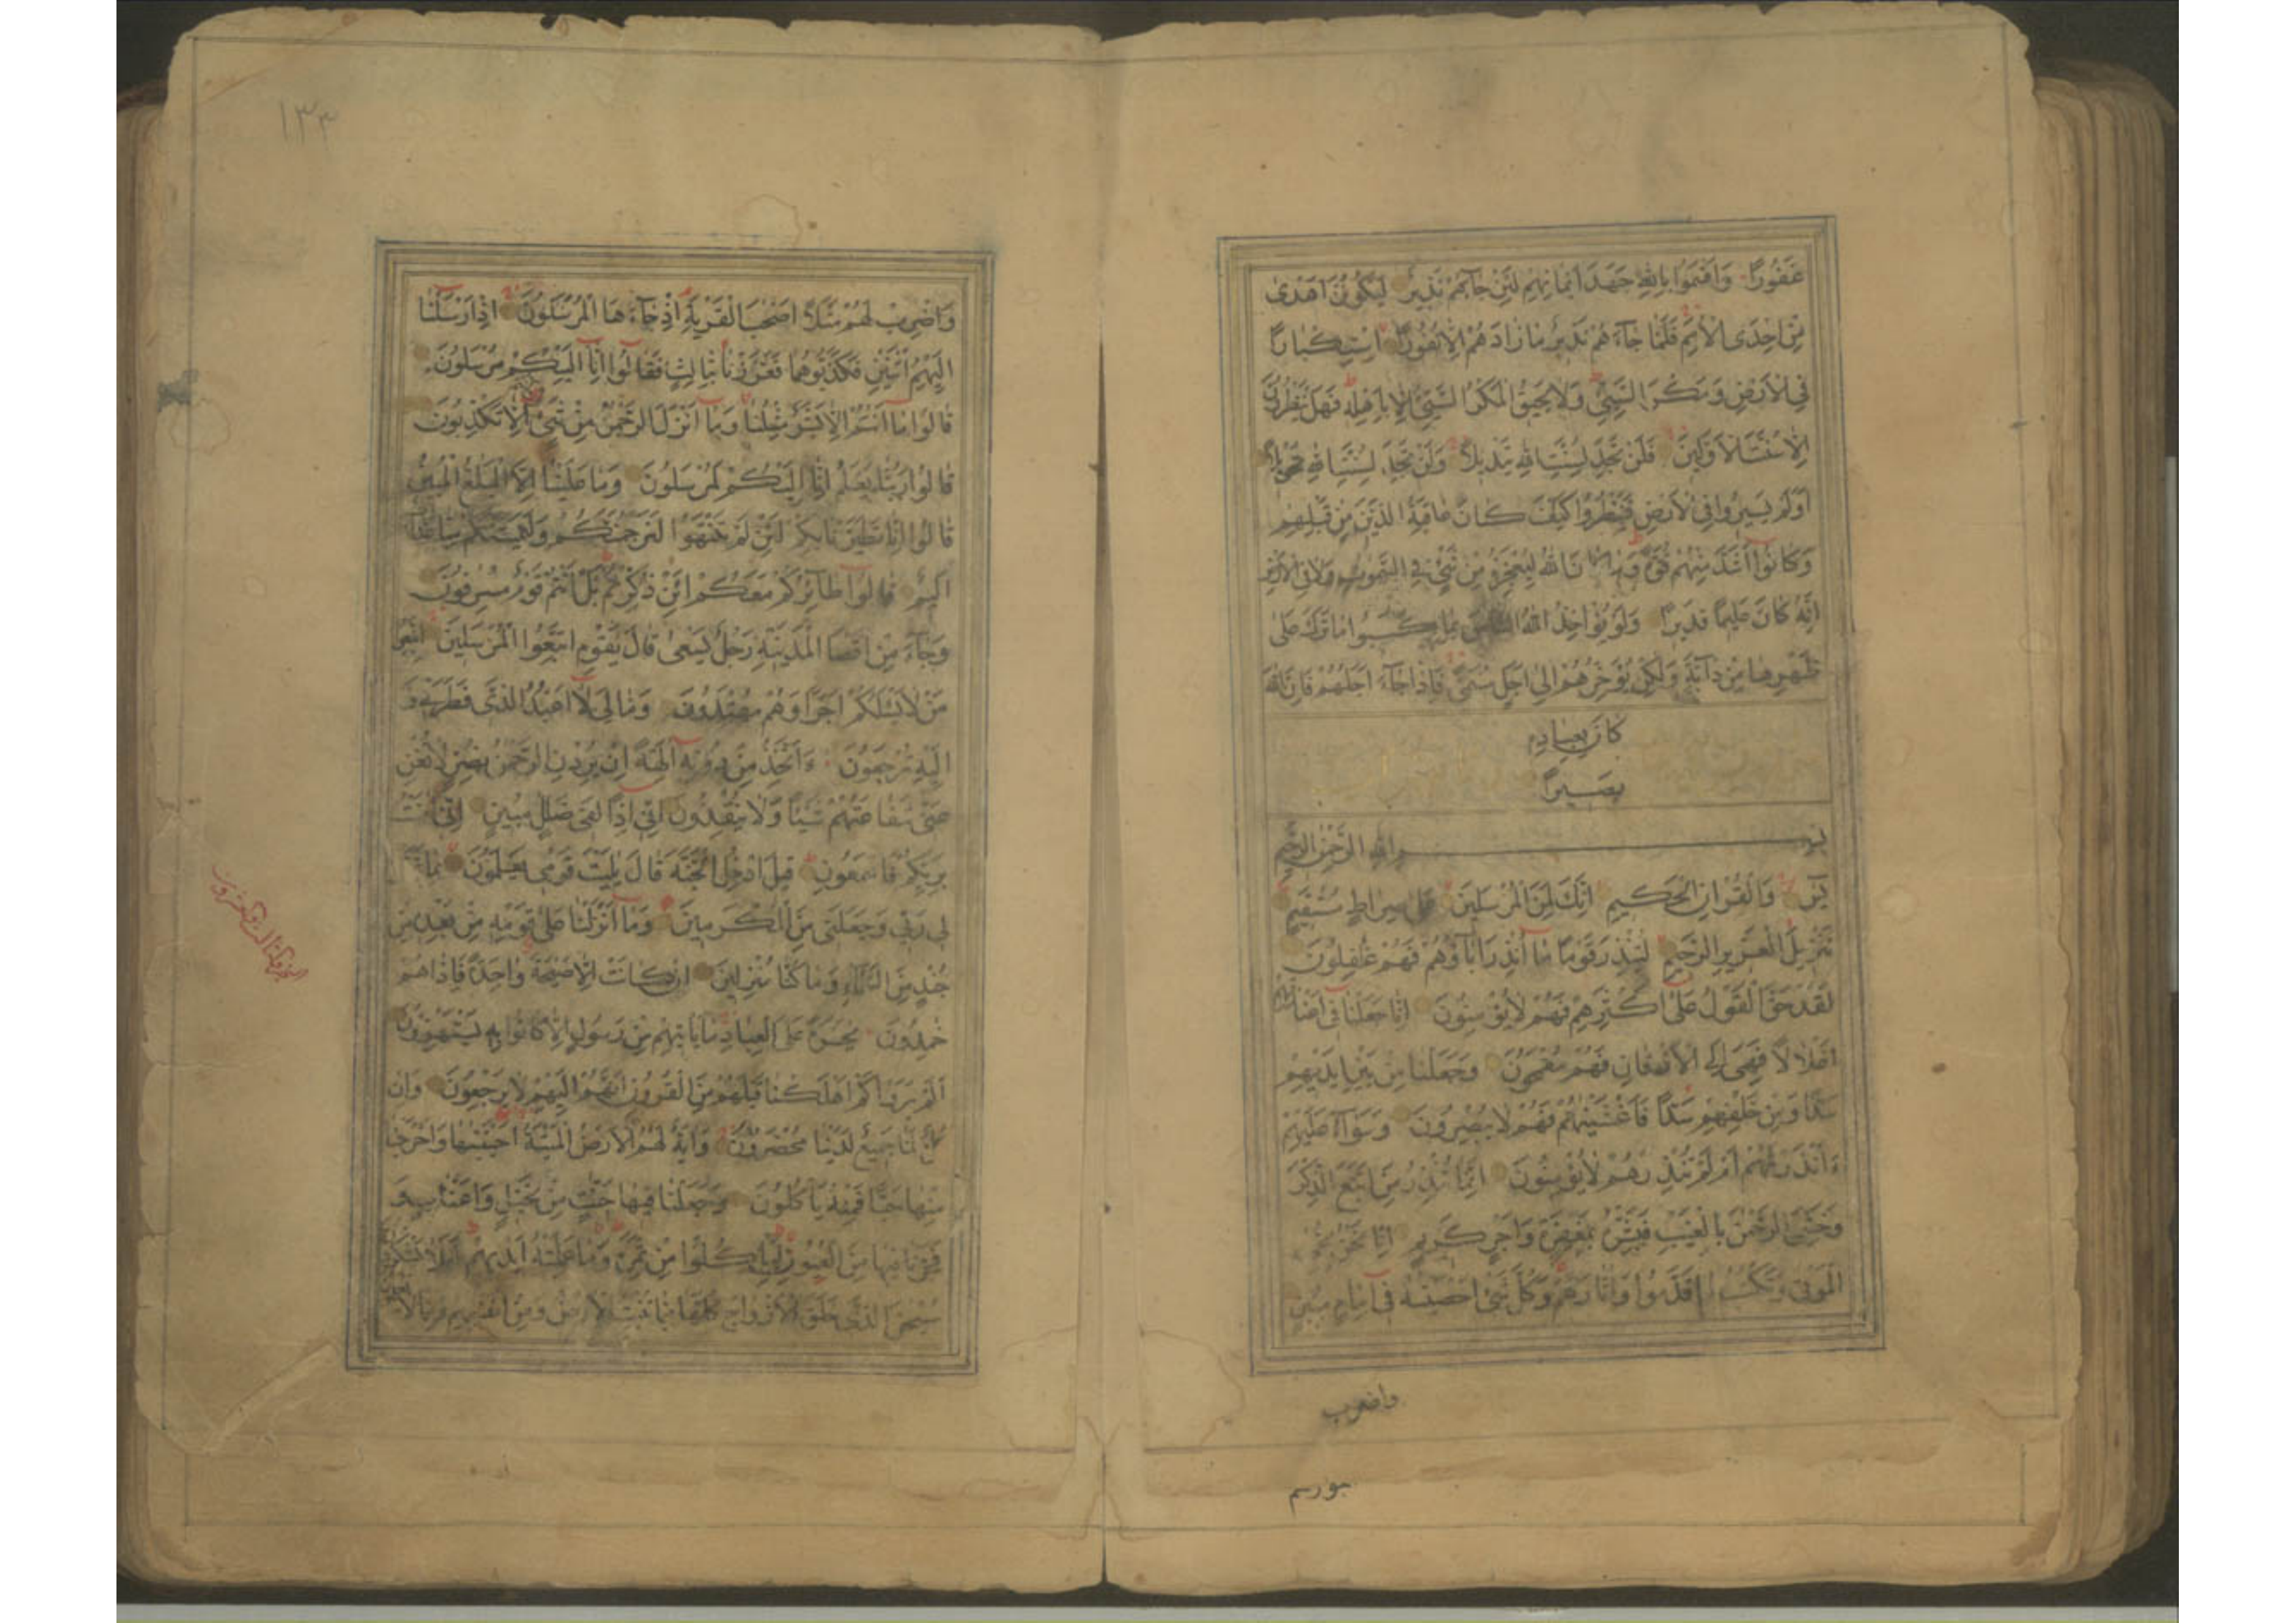 غَفُورًا وَاَقْسَمُوا بِاللهِ جَهْدَ اَيْمَانِهِمْ لَئِنْ جَآءَهُمْ نَذِيرٌ لَيَكُونُنَّ اَهْدٰى
مِنْ اِحْدَى الْاُمَمِ فَلَمَّا جَآءَهُمْ نَذِيرٌ مَا زَادَهُمْ اِلَّا نُفُورًا اسْتِكْبَارًا
فِي الْاَرْضِ وَمَكْرَ السَّيِّئِ وَلَا يَحِيقُ الْمَكْرُ السَّيِّئُ اِلَّا بِاَهْلِهِ فَهَلْ يَنْظُرُونَ
اِلَّا سُنَّتَ الْاَوَّلِينَ فَلَنْ تَجِدَ لِسُنَّتِ اللهِ تَبْدِيلًا وَلَنْ تَجِدَ لِسُنَّتِ اللهِ تَحْوِيلًا
اَوَلَمْ يَسِيرُوا فِي الْاَرْضِ فَيَنْظُرُوا كَيْفَ كَانَ عَاقِبَةُ الَّذِينَ مِنْ قَبْلِهِمْ
وَكَانُوا اَشَدَّ مِنْهُمْ قُوَّةً وَمَا كَانَ اللهُ لِيُعْجِزَهُ مِنْ شَيْءٍ فِي السَّمٰوٰتِ وَلَا فِي الْاَرْضِ
اِنَّهُ كَانَ عَلِيمًا قَدِيرًا وَلَوْ يُؤَاخِذُ اللهُ النَّاسَ بِمَا كَسَبُوا مَا تَرَكَ عَلٰى
ظَهْرِهَا مِنْ دَآبَّةٍ وَلٰكِنْ يُؤَخِّرُهُمْ اِلٰى اَجَلٍ مُسَمًّى فَاِذَا جَآءَ اَجَلُهُمْ فَاِنَّ اللهَ
كَانَ بِعِبَادِهِ
بَصِيرًا
بِسْمِ اللهِ الرَّحْمٰنِ الرَّحِيمِ
يٰسٓ وَالْقُرْاٰنِ الْحَكِيمِ اِنَّكَ لَمِنَ الْمُرْسَلِينَ عَلٰى صِرَاطٍ مُسْتَقِيمٍ
تَنْزِيلَ الْعَزِيزِ الرَّحِيمِ لِتُنْذِرَ قَوْمًا مَا اُنْذِرَ اٰبَآؤُهُمْ فَهُمْ غٰفِلُونَ
لَقَدْ حَقَّ الْقَوْلُ عَلٰى اَكْثَرِهِمْ فَهُمْ لَا يُؤْمِنُونَ اِنَّا جَعَلْنَا فِي اَعْنَاقِهِمْ
اَغْلَالًا فَهِيَ اِلَى الْاَذْقَانِ فَهُمْ مُقْمَحُونَ وَجَعَلْنَا مِنْ بَيْنِ اَيْدِيهِمْ
سَدًّا وَمِنْ خَلْفِهِمْ سَدًّا فَاَغْشَيْنٰهُمْ فَهُمْ لَا يُبْصِرُونَ وَسَوَآءٌ عَلَيْهِمْ
ءَاَنْذَرْتَهُمْ اَمْ لَمْ تُنْذِرْهُمْ لَا يُؤْمِنُونَ اِنَّمَا تُنْذِرُ مَنِ اتَّبَعَ الذِّكْرَ
وَخَشِيَ الرَّحْمٰنَ بِالْغَيْبِ فَبَشِّرْهُ بِمَغْفِرَةٍ وَاَجْرٍ كَرِيمٍ اِنَّا نَحْنُ نُحْيِ
الْمَوْتٰى وَنَكْتُبُ مَا قَدَّمُوا وَاٰثَارَهُمْ وَكُلَّ شَيْءٍ اَحْصَيْنٰهُ فِي اِمَامٍ مُبِينٍ
واضرب
١٣٣
وَاضْرِبْ لَهُمْ مَثَلًا اَصْحٰبَ الْقَرْيَةِ اِذْ جَآءَهَا الْمُرْسَلُونَ اِذْ اَرْسَلْنَا
اِلَيْهِمُ اثْنَيْنِ فَكَذَّبُوهُمَا فَعَزَّزْنَا بِثَالِثٍ فَقَالُوا اِنَّا اِلَيْكُمْ مُرْسَلُونَ
قَالُوا مَا اَنْتُمْ اِلَّا بَشَرٌ مِثْلُنَا وَمَا اَنْزَلَ الرَّحْمٰنُ مِنْ شَيْءٍ اِنْ اَنْتُمْ اِلَّا تَكْذِبُونَ
قَالُوا رَبُّنَا يَعْلَمُ اِنَّا اِلَيْكُمْ لَمُرْسَلُونَ وَمَا عَلَيْنَا اِلَّا الْبَلٰغُ الْمُبِينُ
قَالُوا اِنَّا تَطَيَّرْنَا بِكُمْ لَئِنْ لَمْ تَنْتَهُوا لَنَرْجُمَنَّكُمْ وَلَيَمَسَّنَّكُمْ مِنَّا عَذَابٌ
اَلِيمٌ قَالُوا طَآئِرُكُمْ مَعَكُمْ اَئِنْ ذُكِّرْتُمْ بَلْ اَنْتُمْ قَوْمٌ مُسْرِفُونَ
وَجَآءَ مِنْ اَقْصَا الْمَدِينَةِ رَجُلٌ يَسْعٰى قَالَ يٰقَوْمِ اتَّبِعُوا الْمُرْسَلِينَ اتَّبِعُوا
مَنْ لَا يَسْئَلُكُمْ اَجْرًا وَهُمْ مُهْتَدُونَ وَمَا لِيَ لَا اَعْبُدُ الَّذِي فَطَرَنِي وَ
اِلَيْهِ تُرْجَعُونَ ءَاَتَّخِذُ مِنْ دُونِهِ اٰلِهَةً اِنْ يُرِدْنِ الرَّحْمٰنُ بِضُرٍّ لَا تُغْنِ
عَنِّي شَفَاعَتُهُمْ شَيْئًا وَلَا يُنْقِذُونِ اِنِّي اِذًا لَفِي ضَلٰلٍ مُبِينٍ اِنِّي اٰمَنْتُ
بِرَبِّكُمْ فَاسْمَعُونِ قِيلَ ادْخُلِ الْجَنَّةَ قَالَ يٰلَيْتَ قَوْمِي يَعْلَمُونَ بِمَا غَفَرَ
لِي رَبِّي وَجَعَلَنِي مِنَ الْمُكْرَمِينَ وَمَا اَنْزَلْنَا عَلٰى قَوْمِهِ مِنْ بَعْدِهِ مِنْ
جُنْدٍ مِنَ السَّمَآءِ وَمَا كُنَّا مُنْزِلِينَ اِنْ كَانَتْ اِلَّا صَيْحَةً وَاحِدَةً فَاِذَا هُمْ
خٰمِدُونَ يٰحَسْرَةً عَلَى الْعِبَادِ مَا يَاْتِيهِمْ مِنْ رَسُولٍ اِلَّا كَانُوا بِهِ يَسْتَهْزِؤُنَ
اَلَمْ يَرَوْا كَمْ اَهْلَكْنَا قَبْلَهُمْ مِنَ الْقُرُونِ اَنَّهُمْ اِلَيْهِمْ لَا يَرْجِعُونَ وَاِنْ
كُلٌّ لَمَّا جَمِيعٌ لَدَيْنَا مُحْضَرُونَ وَاٰيَةٌ لَهُمُ الْاَرْضُ الْمَيْتَةُ اَحْيَيْنٰهَا وَاَخْرَجْنَا
مِنْهَا حَبًّا فَمِنْهُ يَاْكُلُونَ وَجَعَلْنَا فِيهَا جَنّٰتٍ مِنْ نَخِيلٍ وَاَعْنَابٍ وَ
فَجَّرْنَا فِيهَا مِنَ الْعُيُونِ لِيَاْكُلُوا مِنْ ثَمَرِهِ وَمَا عَمِلَتْهُ اَيْدِيهِمْ اَفَلَا يَشْكُرُونَ
سُبْحٰنَ الَّذِي خَلَقَ الْاَزْوَاجَ كُلَّهَا مِمَّا تُنْبِتُ الْاَرْضُ وَمِنْ اَنْفُسِهِمْ وَمِمَّا لَا